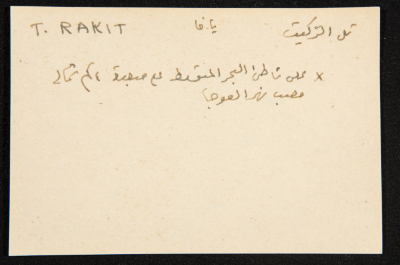 T. RAKIT يافا تل الركيت
x على شاطئ البحر المتوسط على مسافة ٢كم شمالي
مصب نهر العوجا